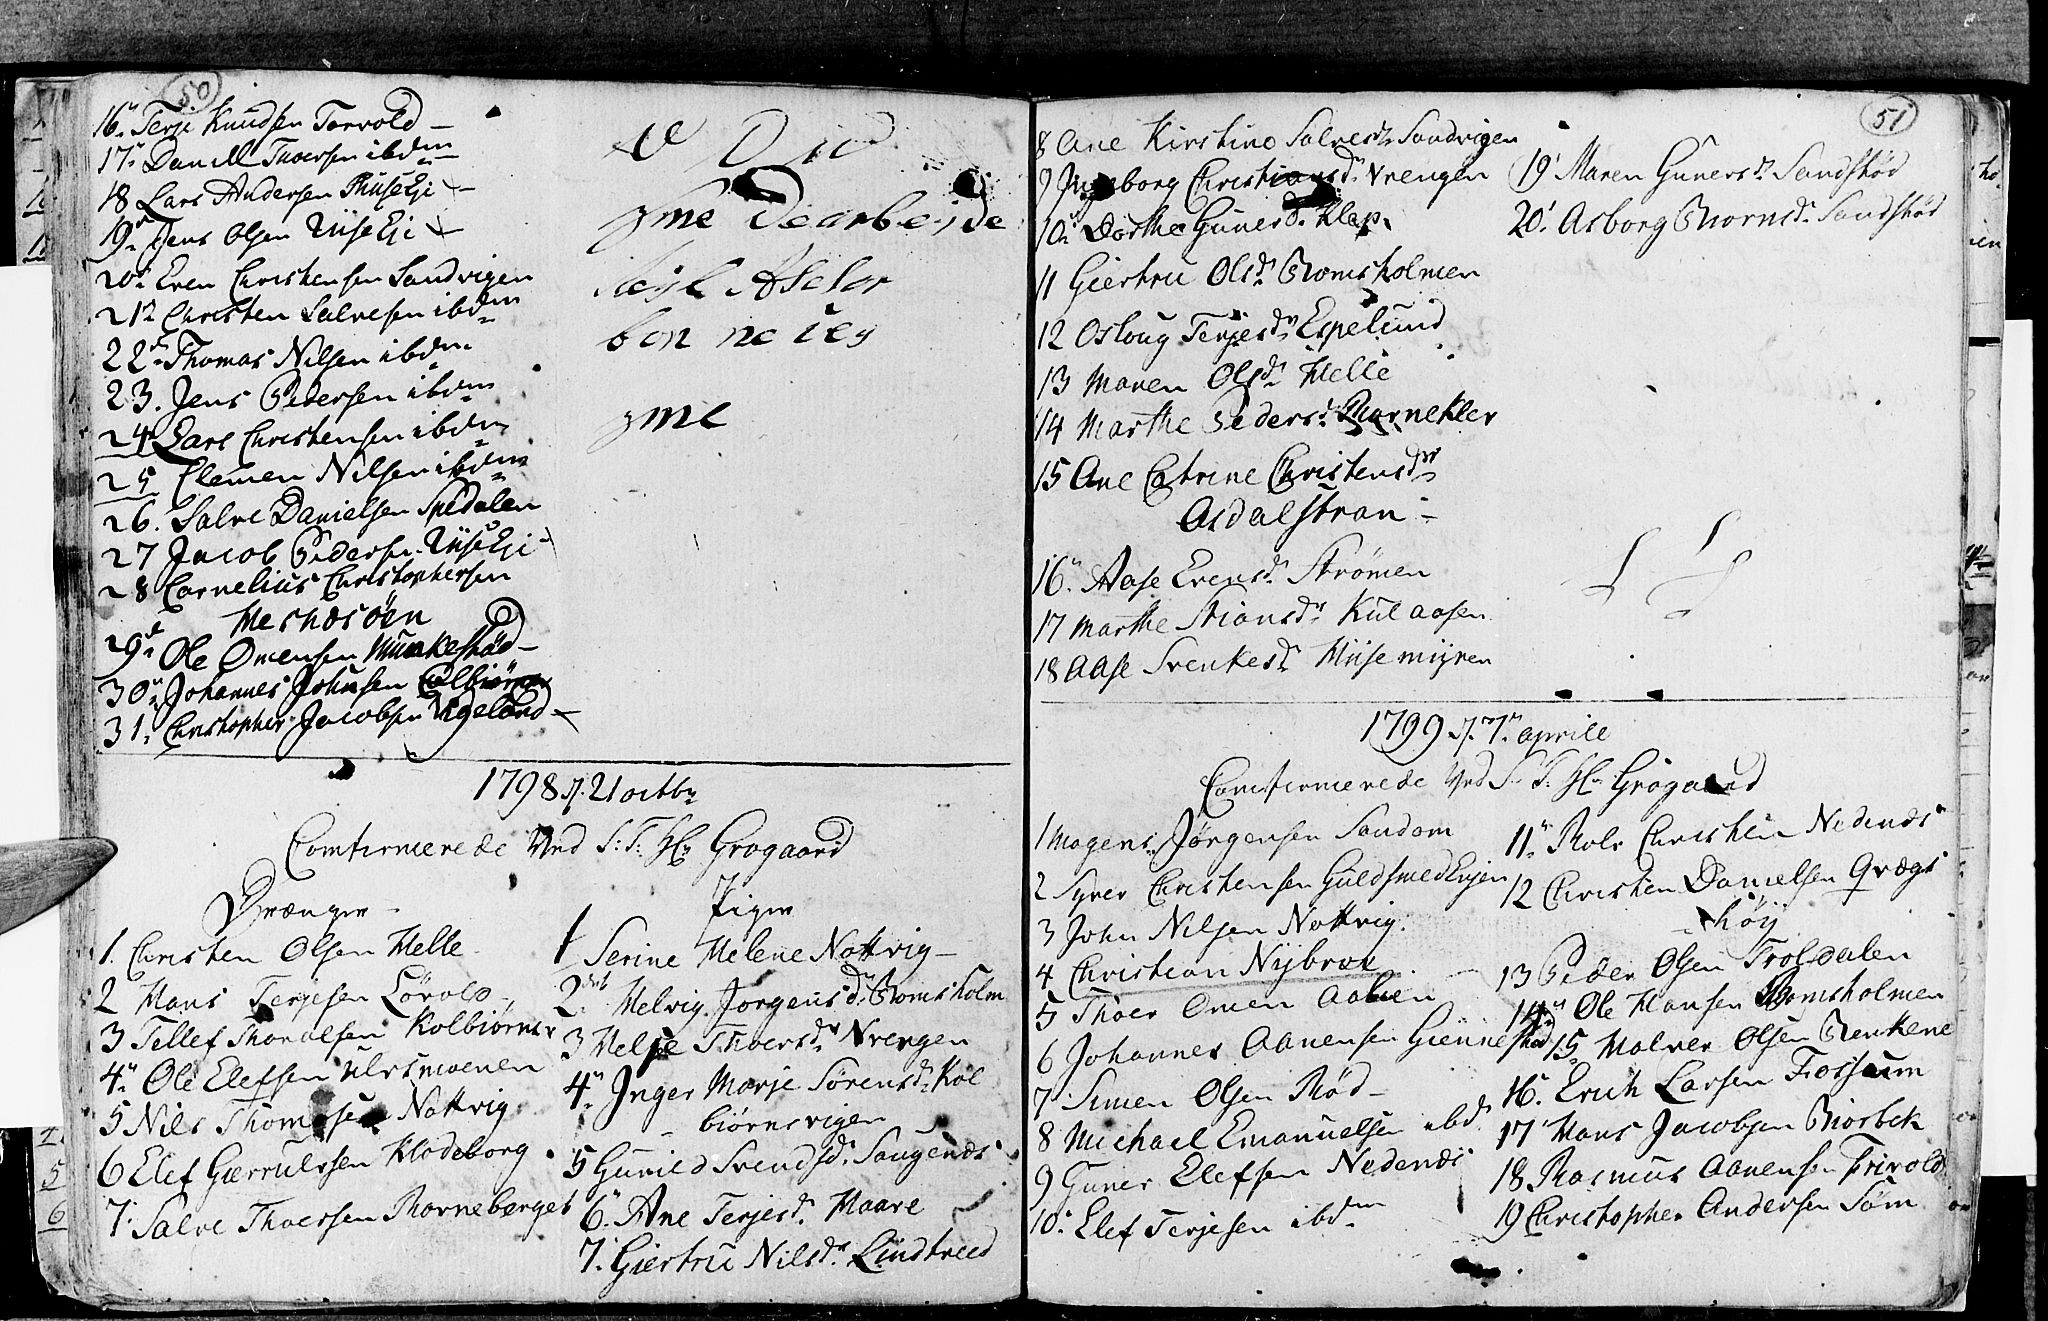 50
16. Terje Knudsen Torvold
17. Daniell Thoersen ibdm
18 Lars Andersen
19. Jens Olsen
20. Even Christensen Sandvigen
21 Christen Salvesen ibdm
22. Thomas Nilsen ibdm
23. Jens Pedersen ibdm
24 Lars Christensen ibdm
25 Clemen Nilsen ibdm
26. Salve Danielsen Spedalen
27 Jacob Pedersen
28 Cornelius Christophersen
Mesnesøen
29. Ole Omensen Munkeshød
30. Johannes Johnsen
31. Christopher Jacobsen Vigeland
1798 d. 21 octbr
Comfirmerede Ved S: T: Hr Grøgaard
Drænger
1. Christen Olsen Helle
2 Hans Terjesen Løvold
3 Tellef Thoralsen Kolbiørns
4. Ole Elefsen
5 Nils Thomasen Nattvig
6 Elef Gierrulssen Klodeborg
7. Salve Thoersen Borneberget
Piger
1 Serine Helene Nattvig
2. Helvig Jørgensd. Bomsholm
3 Helje Thoersdr Vrengen
4. Inger Marje Sørensd. Kol
biørnsvigen
5 Gunild Svendsd. Saugenæs
6. Ane Terjesd. Haave
7. Giertru Nilsdr Lindtveed
51
8 Ane Kirstine Salvesdr Sandvigen
9 Ingeborg Christiansdr Vrengen
10. Dorthe Gunersd. Klep
11 Giertru Olsdr Bomsholmen
12 Osloug Terjesdr Espelund
13 Maren Olsdr Helle
14 Marthe Pedersd. Barnekler
15 Ane Catrine Christensdr
Asdalstran
16. Aase Evensdr Strømen
17 Marthe Stiansdr Kulaasen
18 Aase Svenkesdr Hiisemijren
19 Maren Gunersdr Sandstød
20. Asborg Biornsdr Sandstød
1799 d. 7. aprill
Comfirmerede Ved S. T. Hr Grøgaard
1 Mogens Jørgensen Sandom
2 Syver Christensen Guldsmedenjen
3 John Nilsen Nattvig
4 Christian Nijbroe
5 Thoer Omen Aalien
6 Johannes Aanensen Giennestad
7 Simen Olsen Rød
8 Michael Emanuelsen ibd
9 Guner Elefsen Nedenæs
10. Elef Terjesen ibdm
11. Rolv Christen Nedenæs
12 Christen Danielsen Grægs
høy
13 Peder Olsen Troldalen
14. Ole Hansen Bomsholmen
15 Halver Olsen Renkene
16. Erich Larsen Fossum
17 Hans Jacobsen Biorbek
18 Rasmus Aanensen Frivold
19 Christopher Andersen Søm